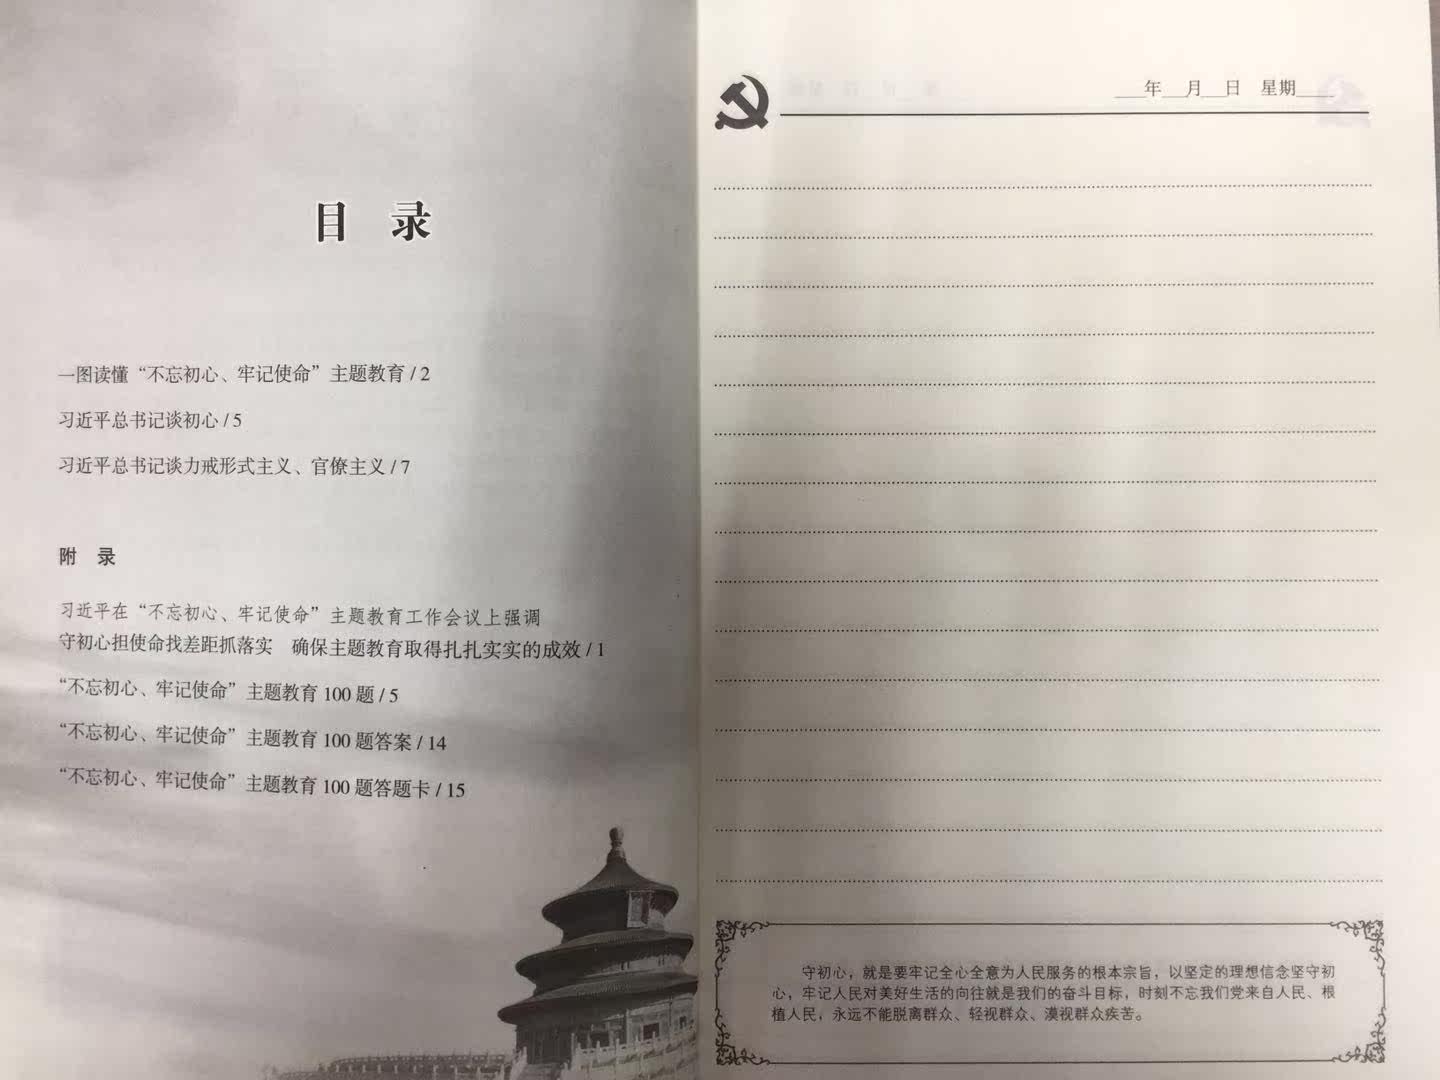 目 录
一图读懂“不忘初心、牢记使命”主题教育 / 2
习近平总书记谈初心 / 5
习近平总书记谈力戒形式主义、官僚主义 / 7
附 录
习近平在“不忘初心、牢记使命”主题教育工作会议上强调
守初心担使命找差距抓落实 确保主题教育取得扎扎实实的成效 / 1
“不忘初心、牢记使命”主题教育 100 题 / 5
“不忘初心、牢记使命”主题教育 100 题答案 / 14
“不忘初心、牢记使命”主题教育 100 题答题卡 / 15
___年___月___日 星期____
守初心，就是要牢记全心全意为人民服务的根本宗旨，以坚定的理想信念坚守初
心，牢记人民对美好生活的向往就是我们的奋斗目标，时刻不忘我们党来自人民、根
植人民，永远不能脱离群众、轻视群众、漠视群众疾苦。